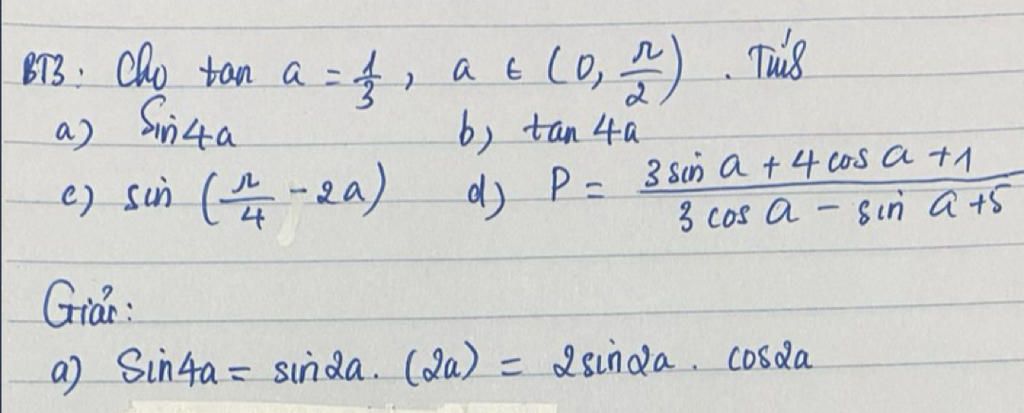 BT3: Cho tan a = 1/3, a ∈ (0, π/2). Tính
a) Sin4a b) tan 4a
c) sin (π/4 - 2a) d) P = (3 sin a + 4 cos a + 1)/(3 cos a - sin a + 5)
Giải:
a) Sin4a = sin2a. (2a) = 2sin2a. cos2a